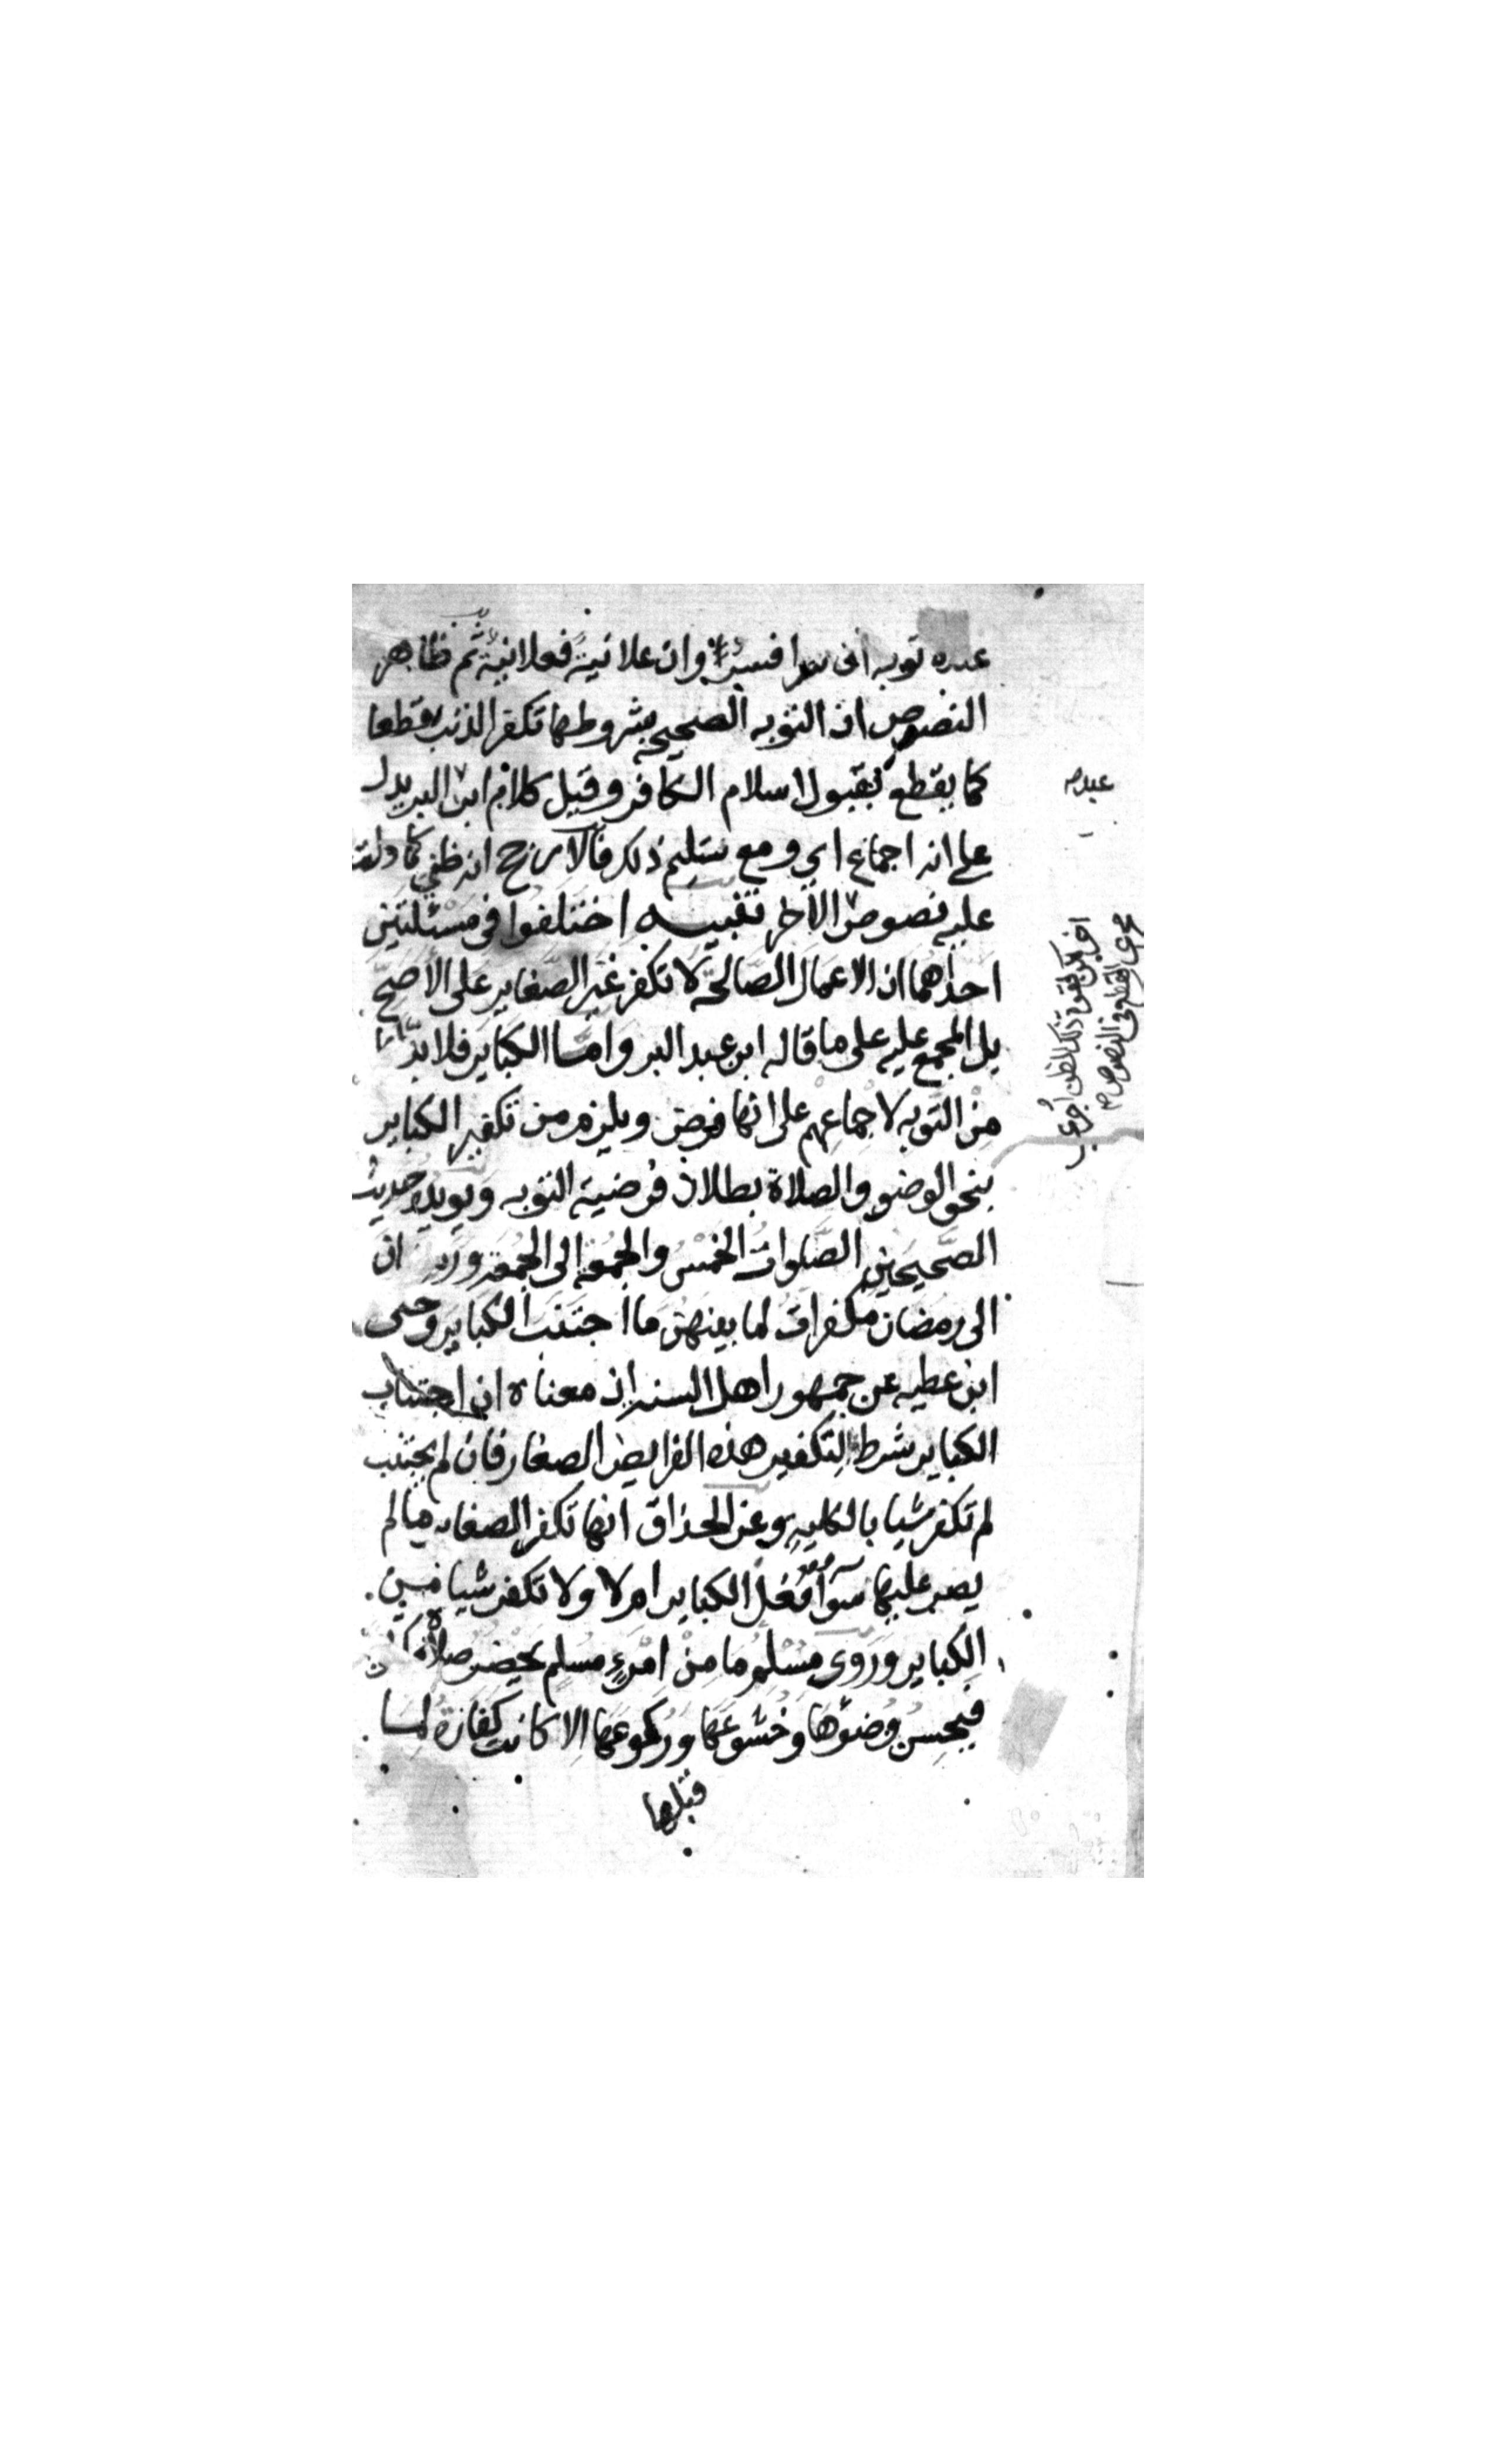 عنده توبه ان سرا فسرا وان علانية فعلانية ثم ظاهر
النصوص ان التوبه الصحيحه بشروطها تكفر الذنب قطعا
كما يقطع بقبول اسلام الكافر وقيل كلام ابن البر يدل
على انه اجماع اي ومع تسليم ذلك فالارجح انه ظني كما دلت
عليه نصوص اخر تنبيه اختلفوا في مسئلتين
احداهما ان الاعمال الصالحة لا تكفر غير الصغاير على الاصح
بل المجمع عليه على ما قاله ابن عبد البر واما الكباير فلا بد
من التوبه لاجماعهم على انها فرض ويلزم من تكفير الكباير
بنحو الوضو والصلاة بطلان فرضية التوبه ويويده حديث
الصحيحين الصلوات الخمس والجمعة الى الجمعة ان
الى رمضان مكفرات لما بينهن ما اجتنبت الكباير وحكى
ابن عطيه عن جمهور اهل السنه ان معناه ان اجتناب
الكباير شرط لتكفير هذه الفرايض الصغار فان لم تجتنب
لم تكفر شيا بالكليه وعن الحذاق انها تكفر الصغاير ما لم
يصر عليها سوآ فعل الكباير ام لا ولا تكفر شيا من
الكباير وروى مسلم ما من امرء مسلم تحضر صلاة
فيحسن وضوها وخشوعها وركوعها الا كانت كفارة لما
قبلها
عبد صح